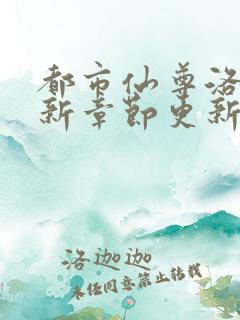 都市仙尊洛
新章节更新
洛迦迦
未经同意禁止转载